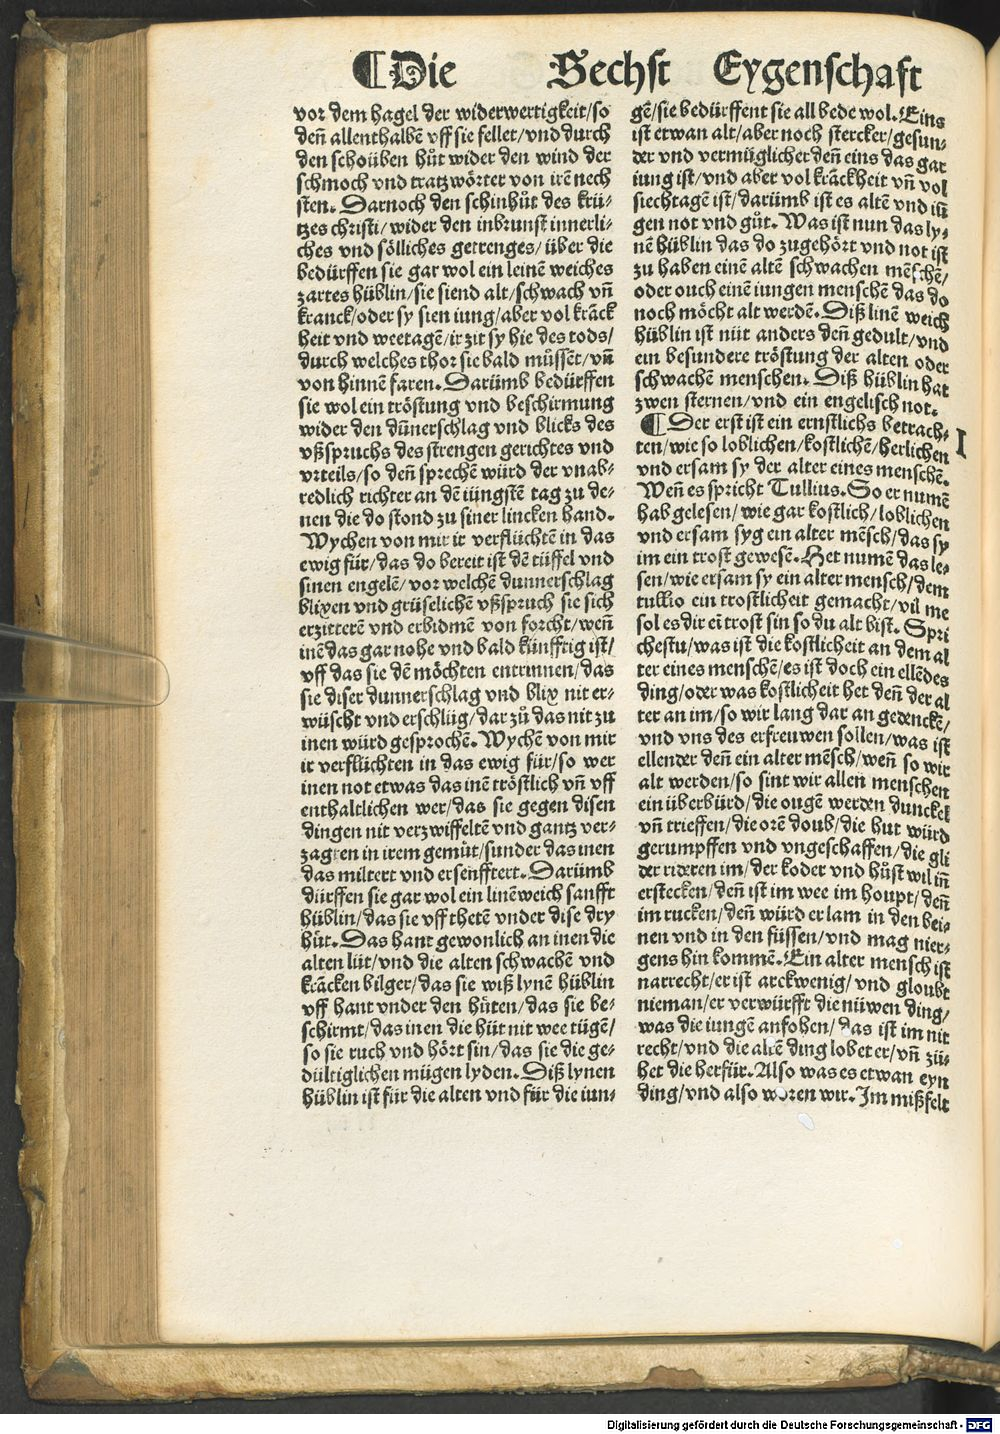 ¶Die Sechst Eygenschaft
vor dem hagel der widerwertigkeit/so
den̄ allenthalbē vff sie fellet/vnd durch
den schoüben hůt wider den wind der
schmoch vnd tratzwörter von irē nech
sten. Darnoch den schinhůt des krü-
tzes christi/wider den inbrunst innerli-
ches vnd sölliches getrenges/über die
bedürffen sie gar wol ein leinē weiches
zartes hüblin/sie siend alt/schwach vn̄
kranck/oder sy sien iung/aber vol krāck
heit vnd weetagē/ir zit sy hie des tods/
durch welches thor sie bald můssēt/vn̄
von hinnē faren. Darümb bedürffen
sie wol ein tröstung vnd beschirmung
wider den dün̄erschlag vnd blicks des
vßspruchs des strengen gerichtes vnd
vrteils/so den̄ sprechē würd der vnab-
redlich richter an dē iüngstē tag zu de-
nen die do stond zu siner lincken hand.
Wychen von mir ir verflüchtē in das
ewig für/das do bereit ist dē tüffel vnd
sinen engelē/vor welchē dunnerschlag
blixen vnd grüselichē vßspruch sie sich
erzitterē vnd erbidmē von forcht/wen̄
inē das gar nohe vnd bald künfftig ist/
vff das sie dē möchten entrinnen/das
sie diser dunnerschlag vnd blix nit er-
wüscht vnd erschlüg/dar zů das nit zu
inen würd gesprochē. Wychē von mir
ir verflüchten in das ewig für/so wer
inen not etwas das inē tröstlich vn̄ vff
enthaltlichen wer/das sie gegen disen
dingen nit verzwiffeltē vnd gantz ver-
zagten in irem gemüt/sunder das inen
das miltert vnd ersenfftert. Darümb
dürffen sie gar wol ein linē weich sanfft
hüblin/das sie vff thetē vnder dise dry
hüt. Das hant gewonlich an inen die
alten lüt/vnd die alten schwachē vnd
krācken bilger/das sie wiß lynē hüblin
vff hant vnder den hüten/das sie be-
schirmt/das inen die hüt nit wee tügē/
so sie ruch vnd hört sin/das sie die ge-
dültiglichen mügen lyden. Diß lynen
hüblin ist für die alten vnd für die iun-
gē/sie bedürffent sie all bede wol. Eins
ist etwan alt/aber noch stercker/gesun-
der vnd vermüglicher den̄ eins das gar
iung ist/vnd aber vol krāckheit vn̄ vol
siechtagē ist/darümb ist es altē vnd iū
gen not vnd gůt. Was ist nun das ly-
nē hüblin das do zugehört vnd not ist
zu haben einē altē schwachen mēschē/
oder ouch einē iungen menschē das do
noch möcht alt werdē. Diß linē weich
hüblin ist nüt anders den̄ gedult/vnd
ein besundere tröstung der alten oder
schwachē menschen. Diß hüblin hat
zwen sternen/vnd ein engelisch not.
¶Der erst ist ein ernstlichs betrach-
I
ten/wie so loblichen/kostlichē/herlichen
vnd ersam sy der alter eines menschē.
Wen̄ es spricht Tullius. So er numē
hab gelesen/wie gar kostlich/loblichen
vnd ersam syg ein alter mēsch/das sy
im ein trost gewesē. Het numē das le-
sen/wie ersam sy ein alter mensch/dem
tullio ein trostlicheit gemacht/vil me
sol es dir eī trost sin so du alt bist. Spri
chestu/was ist die kostlicheit an dem al
ter eines menschē/es ist doch ein ellēdes
ding/oder was kostlicheit het den̄ der al
ter an im/so wir lang dar an gedencke/
vnd vns des erfreuwen sollen/was ist
ellender den̄ ein alter mēsch/wen̄ so wir
alt werden/so sint wir allen menschen
ein überbürd/die ougē werden dunckel
vn̄ trieffen/die orē doub/die hut würd
gerumpffen vnd vngeschaffen/die gli
der rideren im/der koder vnd hůst wil in̄
erstecken/den̄ ist im wee im houpt/den̄
im rucken/den̄ würd er lam in den bei-
nen vnd in den füssen/vnd mag nier-
gens hin kommē. Ein alter mensch ist
narrecht/er ist arckwenig/vnd gloubt
nieman/er verwürfft die nüwen ding/
was die iungē anfohen/das ist im nit
recht/vnd die altē ding lobet er/vn̄ zü-
het die herfür. Also was es etwan eyn
ding/vnd also woren wir. Im mißfelt
Digitalisierung gefördert durch die Deutsche Forschungsgemeinschaft - DFG